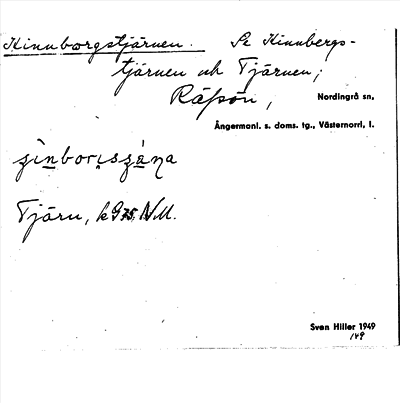 Kinnborgstjärnen. Se Kinnbergs-
tjärnen och Tjärnen,
Råpsön, Nordingrå sn,
Ångermanl. s. doms. tg., Västernorrl. l.
Tjärn, k 975, N.M.
Sven Hiller 1949
149